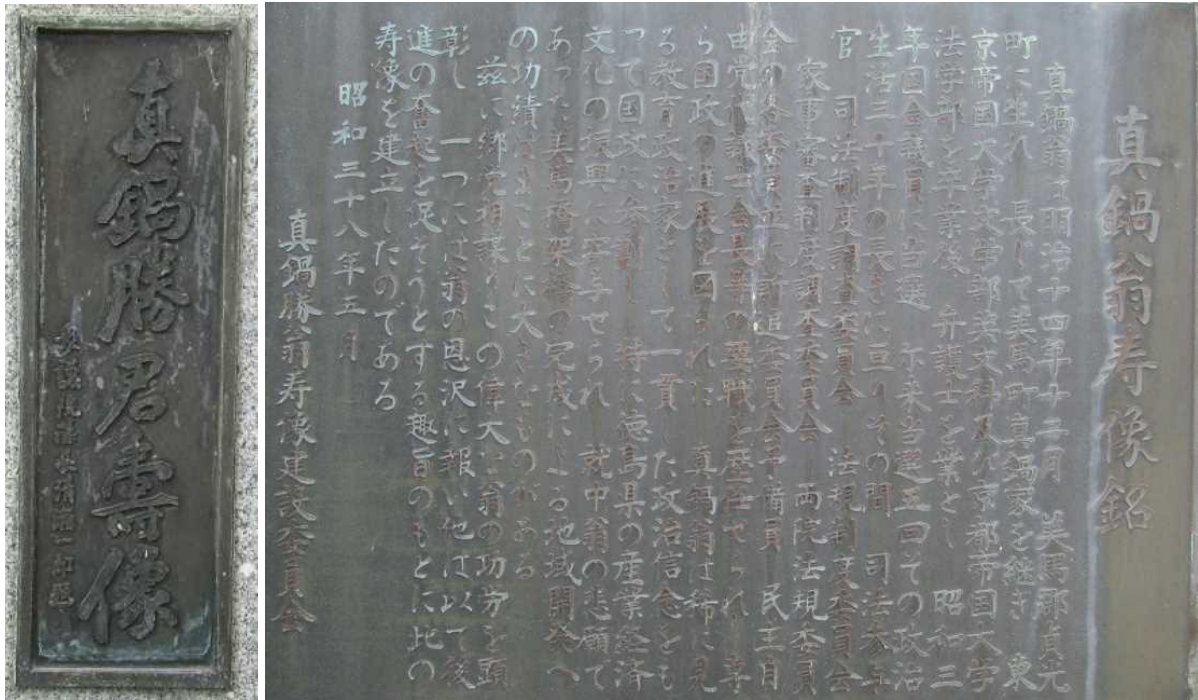 真鍋勝君壽像
衆議院議長清瀬一郎題
真鍋翁寿像銘
真鍋翁は明治十四年十二月 美馬郡貞光
町に生れ 長じて美馬町真鍋家を継ぎ 東
京帝国大学文学部英文科及び京都帝国大学
法学部を卒業後 弁護士を業とし 昭和三
年国会議員に当選 尓来当選五回その政治
生活三十年の長きに亘りその間 司法参与
官 司法制度調査委員会 法規制度委員会
家事審査制度調査委員会 両院法規委員
会の各委員並に訴追委員会予備員 民主自
由党代議士会長等の要職を歴任せられ 専
ら国政の進展を図られた 真鍋翁は稀に見
る教育政治家として一貫した政治信念をも
つて国政に参劃し 特に徳島県の産業経済
文化の振興に寄与せられ 就中翁の悲願で
あった美馬橋架橋の完成による地域開発へ
の功績はまことに大きなものがある
茲に郷党相謀りこの偉大な翁の功労を顕
彰し 一つには翁の恩沢に報い他は以て後
進の奮起を促そうとする趣旨のもとに此の
寿像を建立したのである
昭和三十八年五月
真鍋勝翁寿像建設委員会